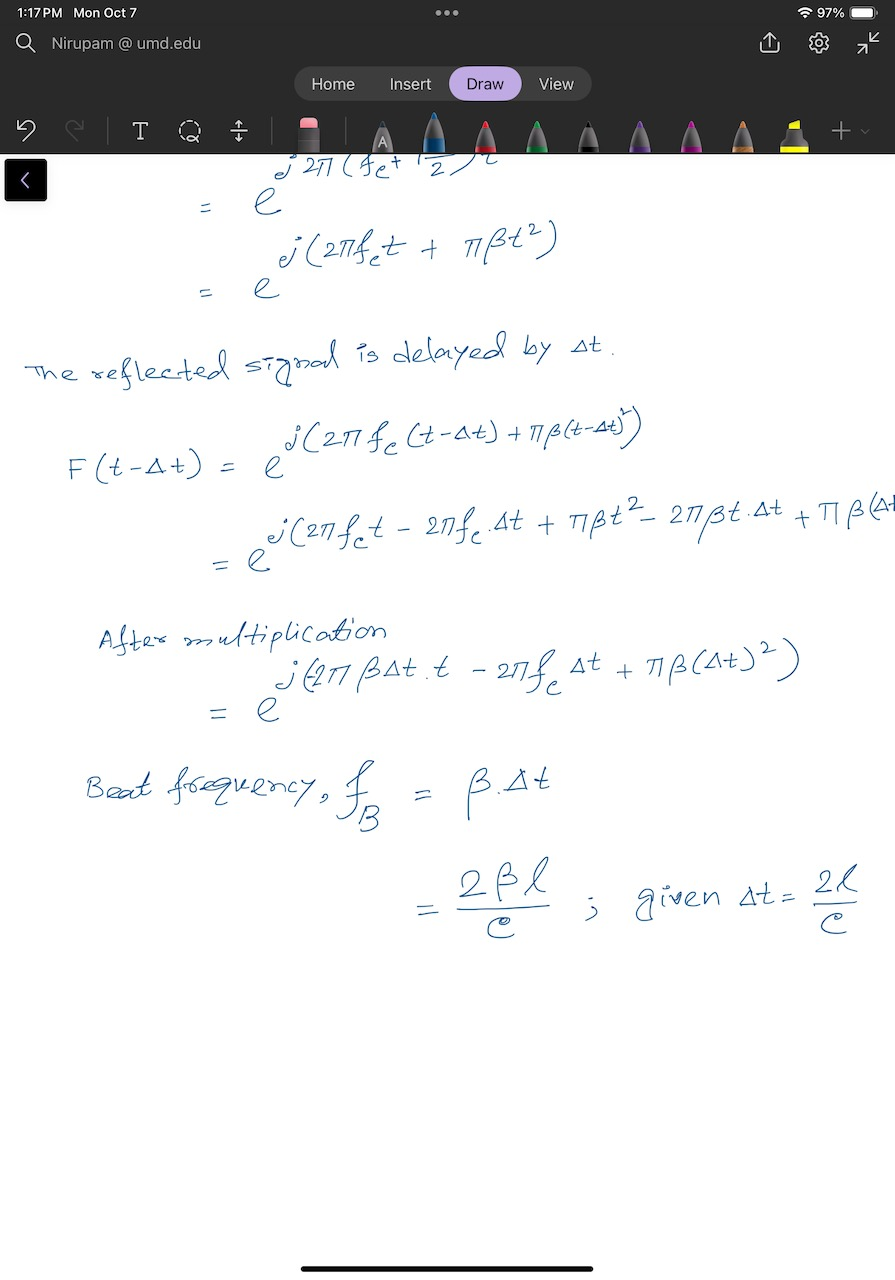 1:17 PM Mon Oct 7
97%
Nirupam @ umd.edu
Home Insert Draw View
T
A
= e^{j2π(f_c+ 2)t}
= e^{j(2πf_c t + πβt²)}
The reflected signal is delayed by Δt.
F(t-Δt) = e^{j(2πf_c(t-Δt) + πβ(t-Δt)²)}
= e^{j(2πf_c t - 2πf_c.Δt + πβt² - 2πβt.Δt + πβ(Δt}
After multiplication
= e^{j(-2πβΔt.t - 2πf_cΔt + πβ(Δt)²)}
Beat frequency, f_B = β.Δt
= \frac{2βl}{c} ; given Δt = \frac{2l}{c}